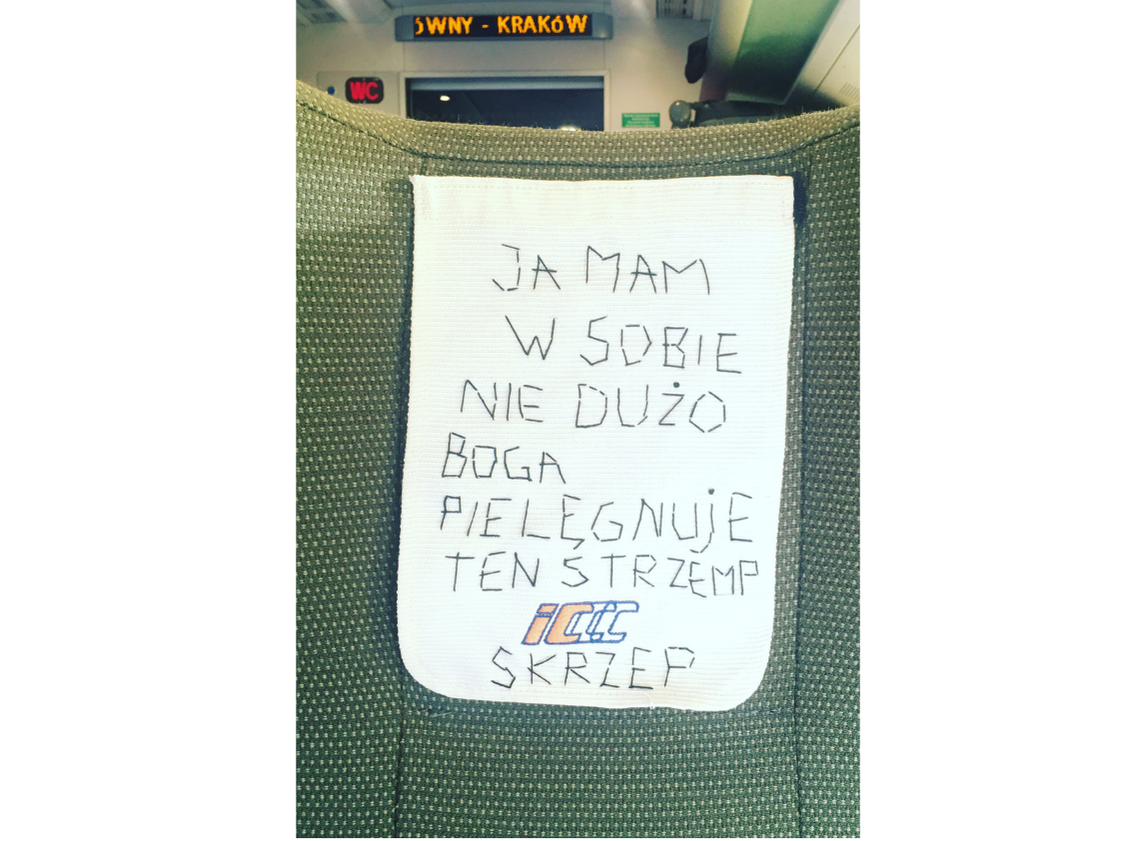 ÓWNY - KRAKÓW
WC
JA MAM
W SOBIE
NIE DUŻO
BOGA
PIELĘGNUJE
TEN STRZEMP
iC
SKRZEP